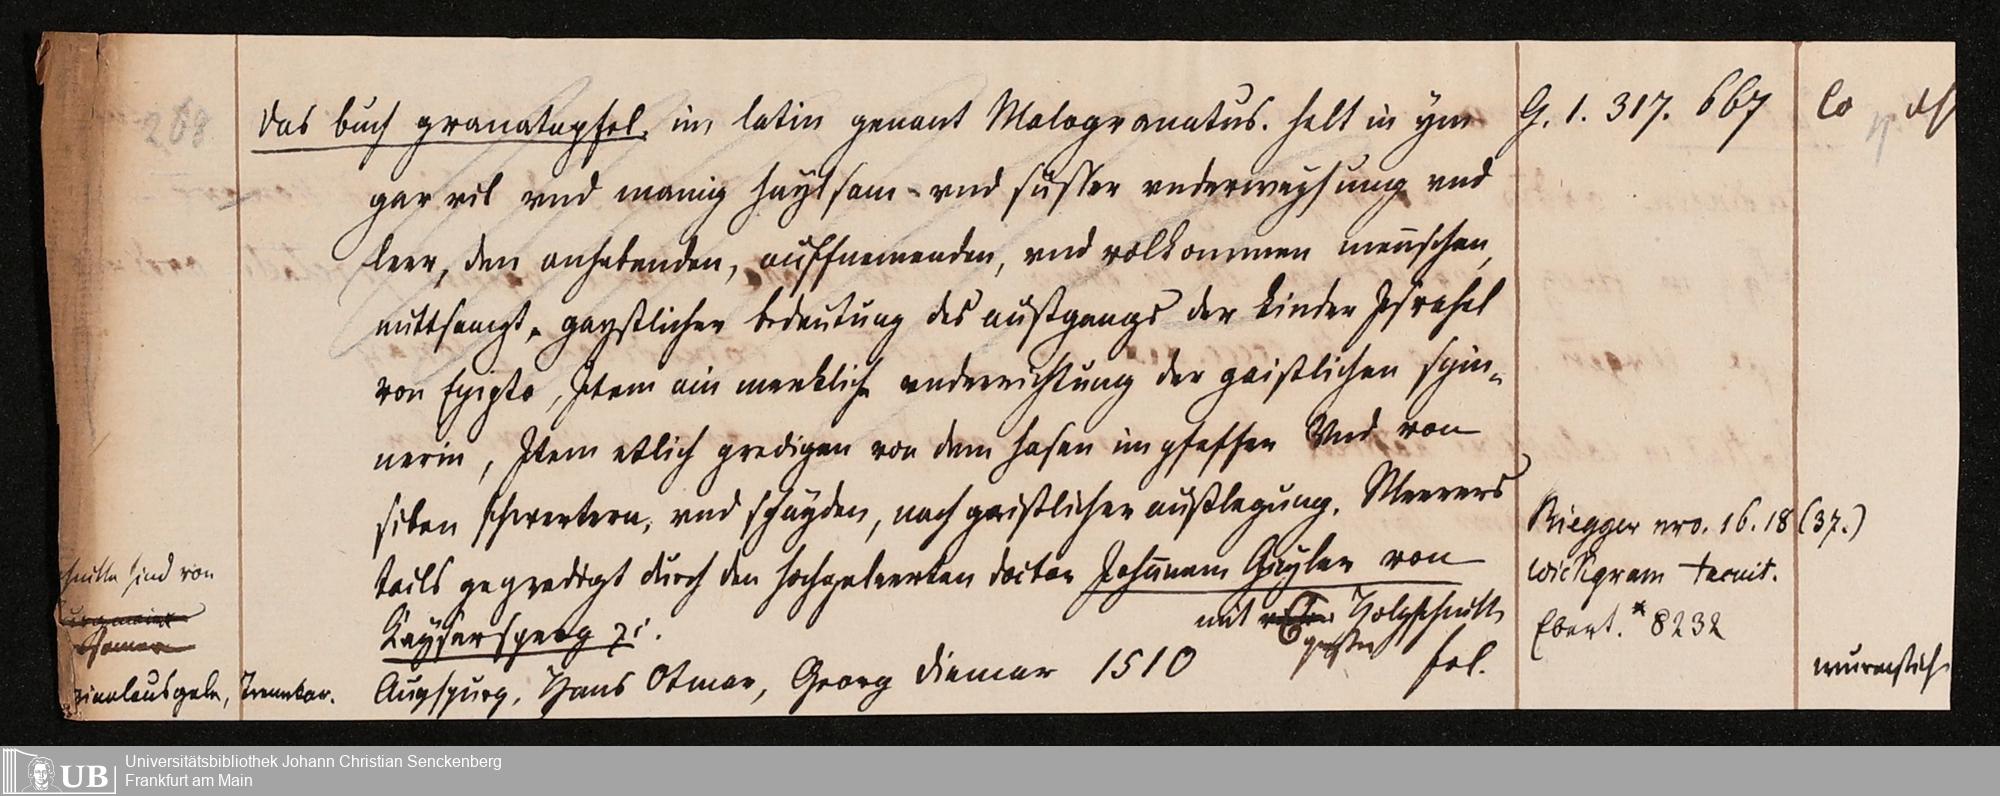 268
Das buch granatapfel. im latin genant Malogranatus. helt in ym
gar vil vnd manig haylsam vnd süsser vnderweysung vnd
leer, den anhebenden, auffnemenden, vnd volkommen mennschen,
mittsampt gaystlicher bedeutung des außgangs der kinder Jsrahel
von Egipto, Item ain merkliche vnderrichtung der gaistlichen spin-
nerin, Item etlich predigen von dem hasen im pfeffer Vnd von
siben schwertern, vnd schayden, nach gaistlicher außlegung. Meerers
tails gepredigt durch den hochgeleerten doctor Johannem Gayler von
Kaysersperg zc.
mit Holzschnitt
Augspurg, Hans Otmar, Georg Diemar 1510 fol.
G. 1. 317. 667
Co
Riegger nro. 16. 18 (37.)
Wickgram tacuit.
Ebert.* 8232
wurmstich
schnitte sind von
ginalausgabe,